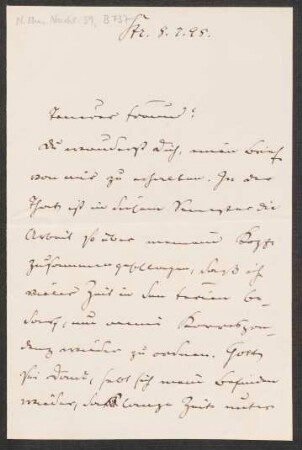 Str. 8.7.95.
Teurer Freund!
Du wunderst Dich, einen Brief
von mir zu erhalten. In der
That ist in diesem Semester die
Arbeit so über meinem Kopf
zusammengeschlagen, daß ich
vieler Zeit in den Ferien be-
darf, um meine Korrespon-
denz wieder zu ordnen. Gott
sei Dank, hebt sich mein Befinden
wieder, das lange Zeit unter